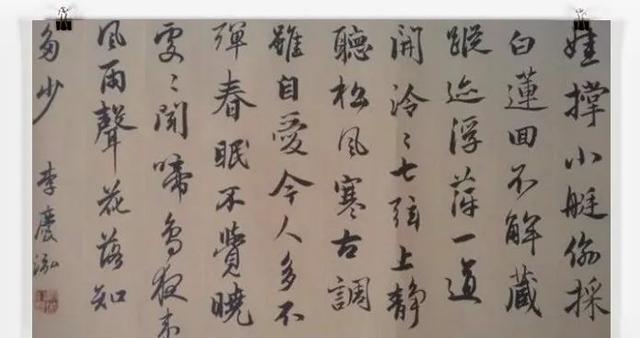 娃撑小艇偷採
白蓮回不解藏
蹤迹浮萍一道
開泠〻七弦上静
聽松風寒古調
雖自愛今人多不
彈春眠不覺曉
處〻聞啼鳥夜来
風雨聲花落知
多少 李慶泓